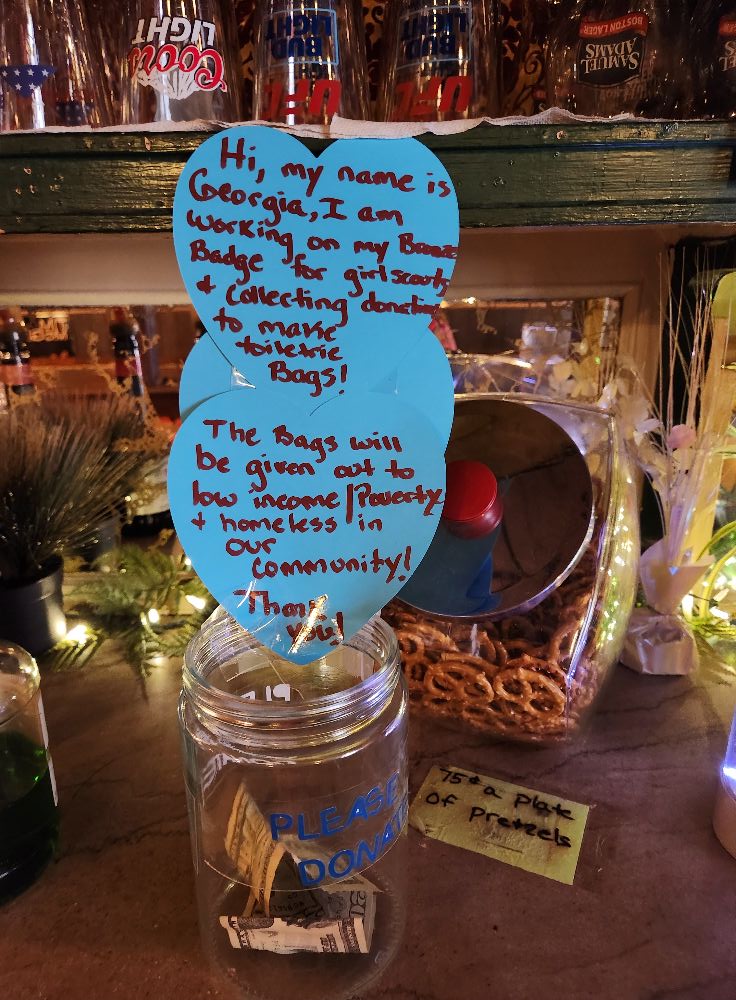 Coors
LIGHT
BUD
LIGHT
UFC
BUD
LIGHT
UFC
BOSTON LAGER
SAMUEL
ADAMS
Hi, my name is
Georgia, I am
working on my Bronze
Badge for girl scouts
+ collecting donations
to make
toiletrie
Bags!
The Bags will
be given out to
low income/Poverty
+ homeless in
our
community!
Thank
you!
PLEASE
DONATE
75¢ a plate
of pretzels